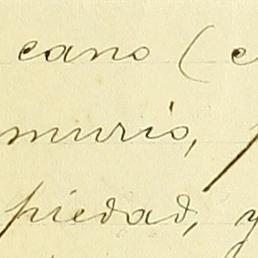 cano (
murio,
piedad, y